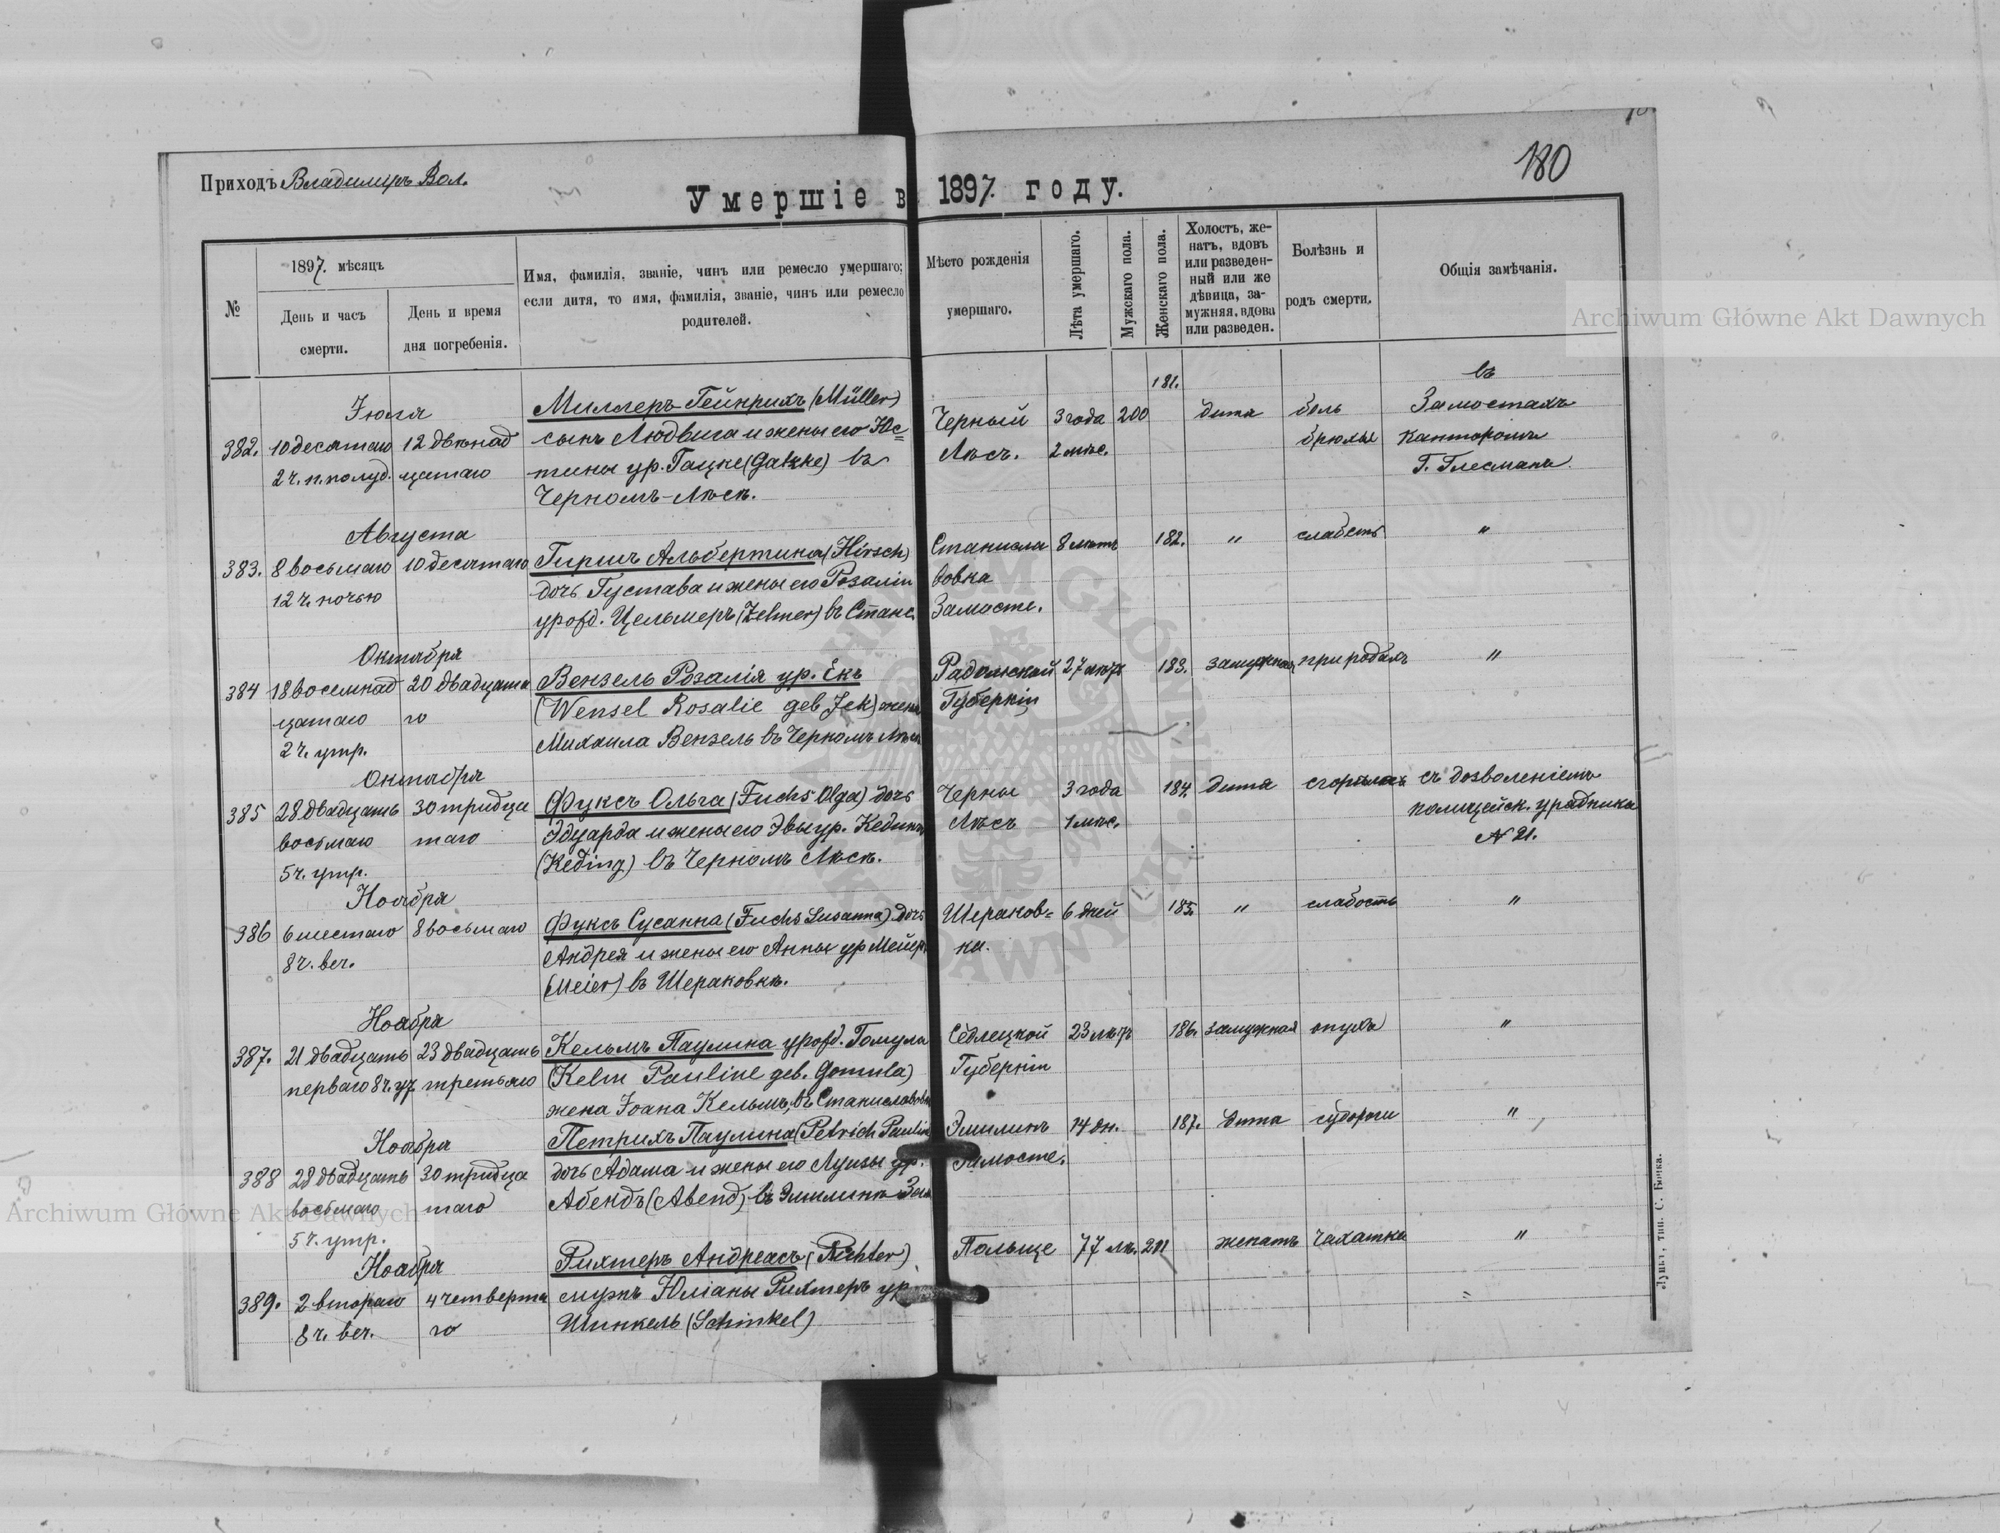 180
Приходъ Владимиръ Вол.
Умершіе въ 1897. году.
№
1897. мѣсяцъ
День и часъ смерти.
День и время дня погребенія.
Имя, фамилія, званіе, чинъ или ремесло умершаго;
если дитя, то имя, фамилія, званіе, чинъ или ремесло
родителей.
Мѣсто рожденія
умершаго.
Лѣта умершаго.
Мужскаго пола.
Женскаго пола.
Холостъ, же-
натъ, вдовъ
или разведен-
ный или же
дѣвица, за-
мужняя, вдова
или разведен.
Болѣзнь и
родъ смерти.
Общія замѣчанія.
181.
Іюля
382. 10 десятаго
2 ч. п. полуд.
12 двѣнад
цатаго
Миллеръ Гейнрихъ (Müller)
сынъ Людвига и жены его Юс=
тины ур. Гацке (Gatzke) въ
Черномъ-Лѣсѣ.
Черный
Лѣсъ.
3 года
2 мѣс.
200
дитя
боль
брюхья
въ
Замостахъ
Канторомъ
Г. Глесманъ.
Августа
383. 8 восьмаго
12 ч. ночью
10 десятаго
Гиршъ Альбертина (Hirsch)
дочь Густава и жены его Розаліи
урожд. Цельмеръ (Zelmer) въ Станс.
Станисла
вовка
Замосте.
8 лѣтъ
182.
"
слабость
"
Октября
384 18 восемнад
цатаго
2 ч. утр.
20 двадцата
го
Вензель Розалія ур. Екъ
(Wensel Rosalie geb Jek) жена
Михаила Вензель въ Черномъ Лѣсѣ
Радомской
Губерніи
27 лѣтъ
183.
замужная
при родахъ
"
Октября
385 28 двадцать
восьмаго
5 ч. утр.
30 тридца
таго
Фуксъ Ольга (Fuchs Olga) дочь
Эдуарда и жены его Эвы ур. Кедингъ
(Keding) въ Черномъ Лѣсѣ.
Черны
Лѣсъ
3 года
1 мѣс.
184.
дитя
сгорѣлась
съ дозволеніемъ
полицейск. урядника
№ 21.
Ноября
386 6 шестаго
8 ч. веч.
8 восьмаго
Фуксъ Сусанна (Fuchs Susanna) дочь
Андрея и жены его Анны ур Мейеръ
(Meier) въ Шераковкѣ.
Шераков=
ка.
6 дней
185.
"
слабость
"
Ноября
387. 21 двадцать
перваго 8 ч. ут.
23 двадцать
третьяго
Кельмъ Паулина урожд. Гомула
(Kelm Pauline geb. Gomula)
жена Іоана Кельмъ, въ Станиславовк
Сѣдлецкой
Губерніи
23 лѣтъ
186.
замужная
опухъ
"
Ноября
388 28 двадцать
восьмаго
5 ч. утр.
30 тридца
таго
Петрихъ Паулина (Petrich Paulin
дочь Адама и жены его Луизы ур.
Абендъ (Abend) въ Эмилинѣ Зам
Эмилинъ
Замосте.
14 дн.
187.
дитя
судороги
"
Ноября
389. 2 втораго
8 ч. веч.
4 четверта
го
Рихтеръ Андреасъ (Richter)
мужъ Юліаны Рихтеръ ур.
Шинкель (Schinkel)
Польще
77 лѣ.
201
женатъ
чахатка
"
Луцкъ, тип. С. Бонка.
Archiwum Główne Akt Dawnych
Archiwum Główne Akt Dawnych